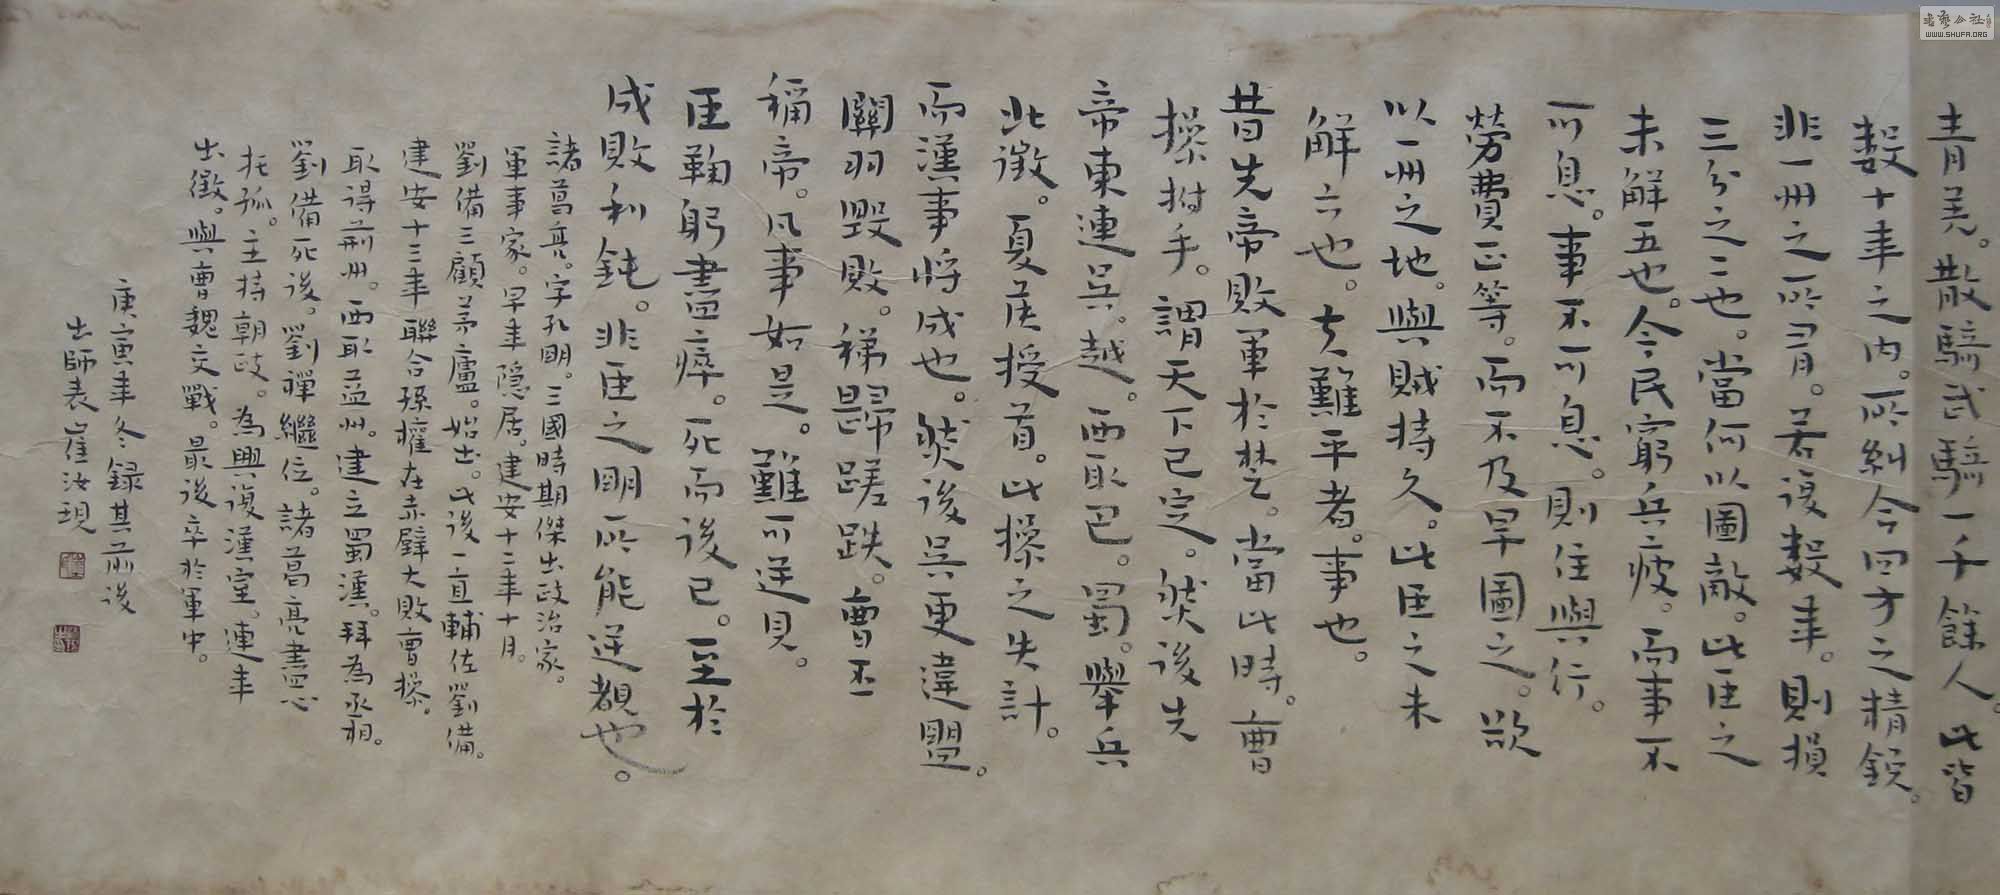 青羌。散騎武騎一千餘人。此皆
數十年之內。所糾合四方之精銳。
非一州之所有。若復數年。則損
三分之二也。當何以圖敵。此臣之
未解五也。今民窮兵疲。而事不
可息。事不可息。則住與行。
勞費正等。而不及早圖之。欲
以一州之地。與賊持久。此臣之未
解六也。夫難平者。事也。
昔先帝敗軍於楚。當此時。曹
操拊手。謂天下已定。然後先
帝東連吳。越。西取巴。蜀。舉兵
北徵。夏侯授首。此操之失計。
而漢事將成也。然後吳更違盟。
關羽毀敗。秭歸蹉跌。曹丕
稱帝。凡事如是。難可逆見。
臣鞠躬盡瘁。死而後已。至於
成敗利鈍。非臣之明所能逆覩也。
諸葛亮。字孔明。三國時期傑出政治家。
軍事家。早年隱居。建安十二年十月。
劉備三顧茅廬。始出。此後一直輔佐劉備。
建安十三年聯合孫權在赤壁大敗曹操。
取得荊州。西取益州。建立蜀漢。拜為丞相。
劉備死後。劉禪繼位。諸葛亮盡心
托孤。主持朝政。為興復漢室。連年
出徵。與曹魏交戰。最後卒於軍中。
庚寅年冬錄其前後
出師表崔汝現
書藝公社
WWW.SHUFA.ORG